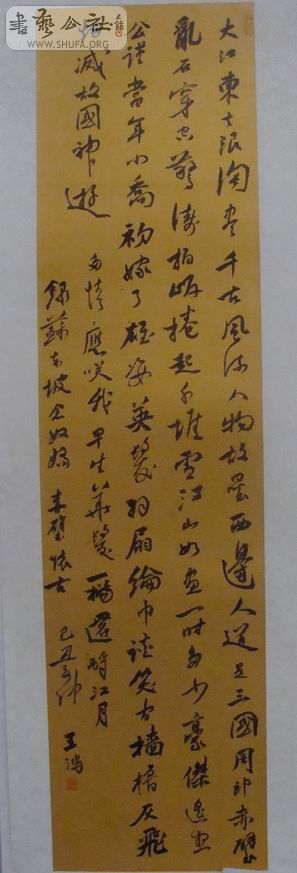 書藝公社
WWW.SHUFA.ORG
大江東去浪淘盡千古風流人物故壘西邊人道是三國周郎赤壁
亂石穿空驚濤拍岸捲起千堆雪江山如畫一時多少豪傑遙想
公謹當年小喬初嫁了雄姿英發羽扇綸巾談笑間檣櫓灰飛
滅故國神遊
多情應笑我早生華髮一樽還酹江月
錄蘇東坡念奴嬌 赤壁懷古 己丑 王鴻